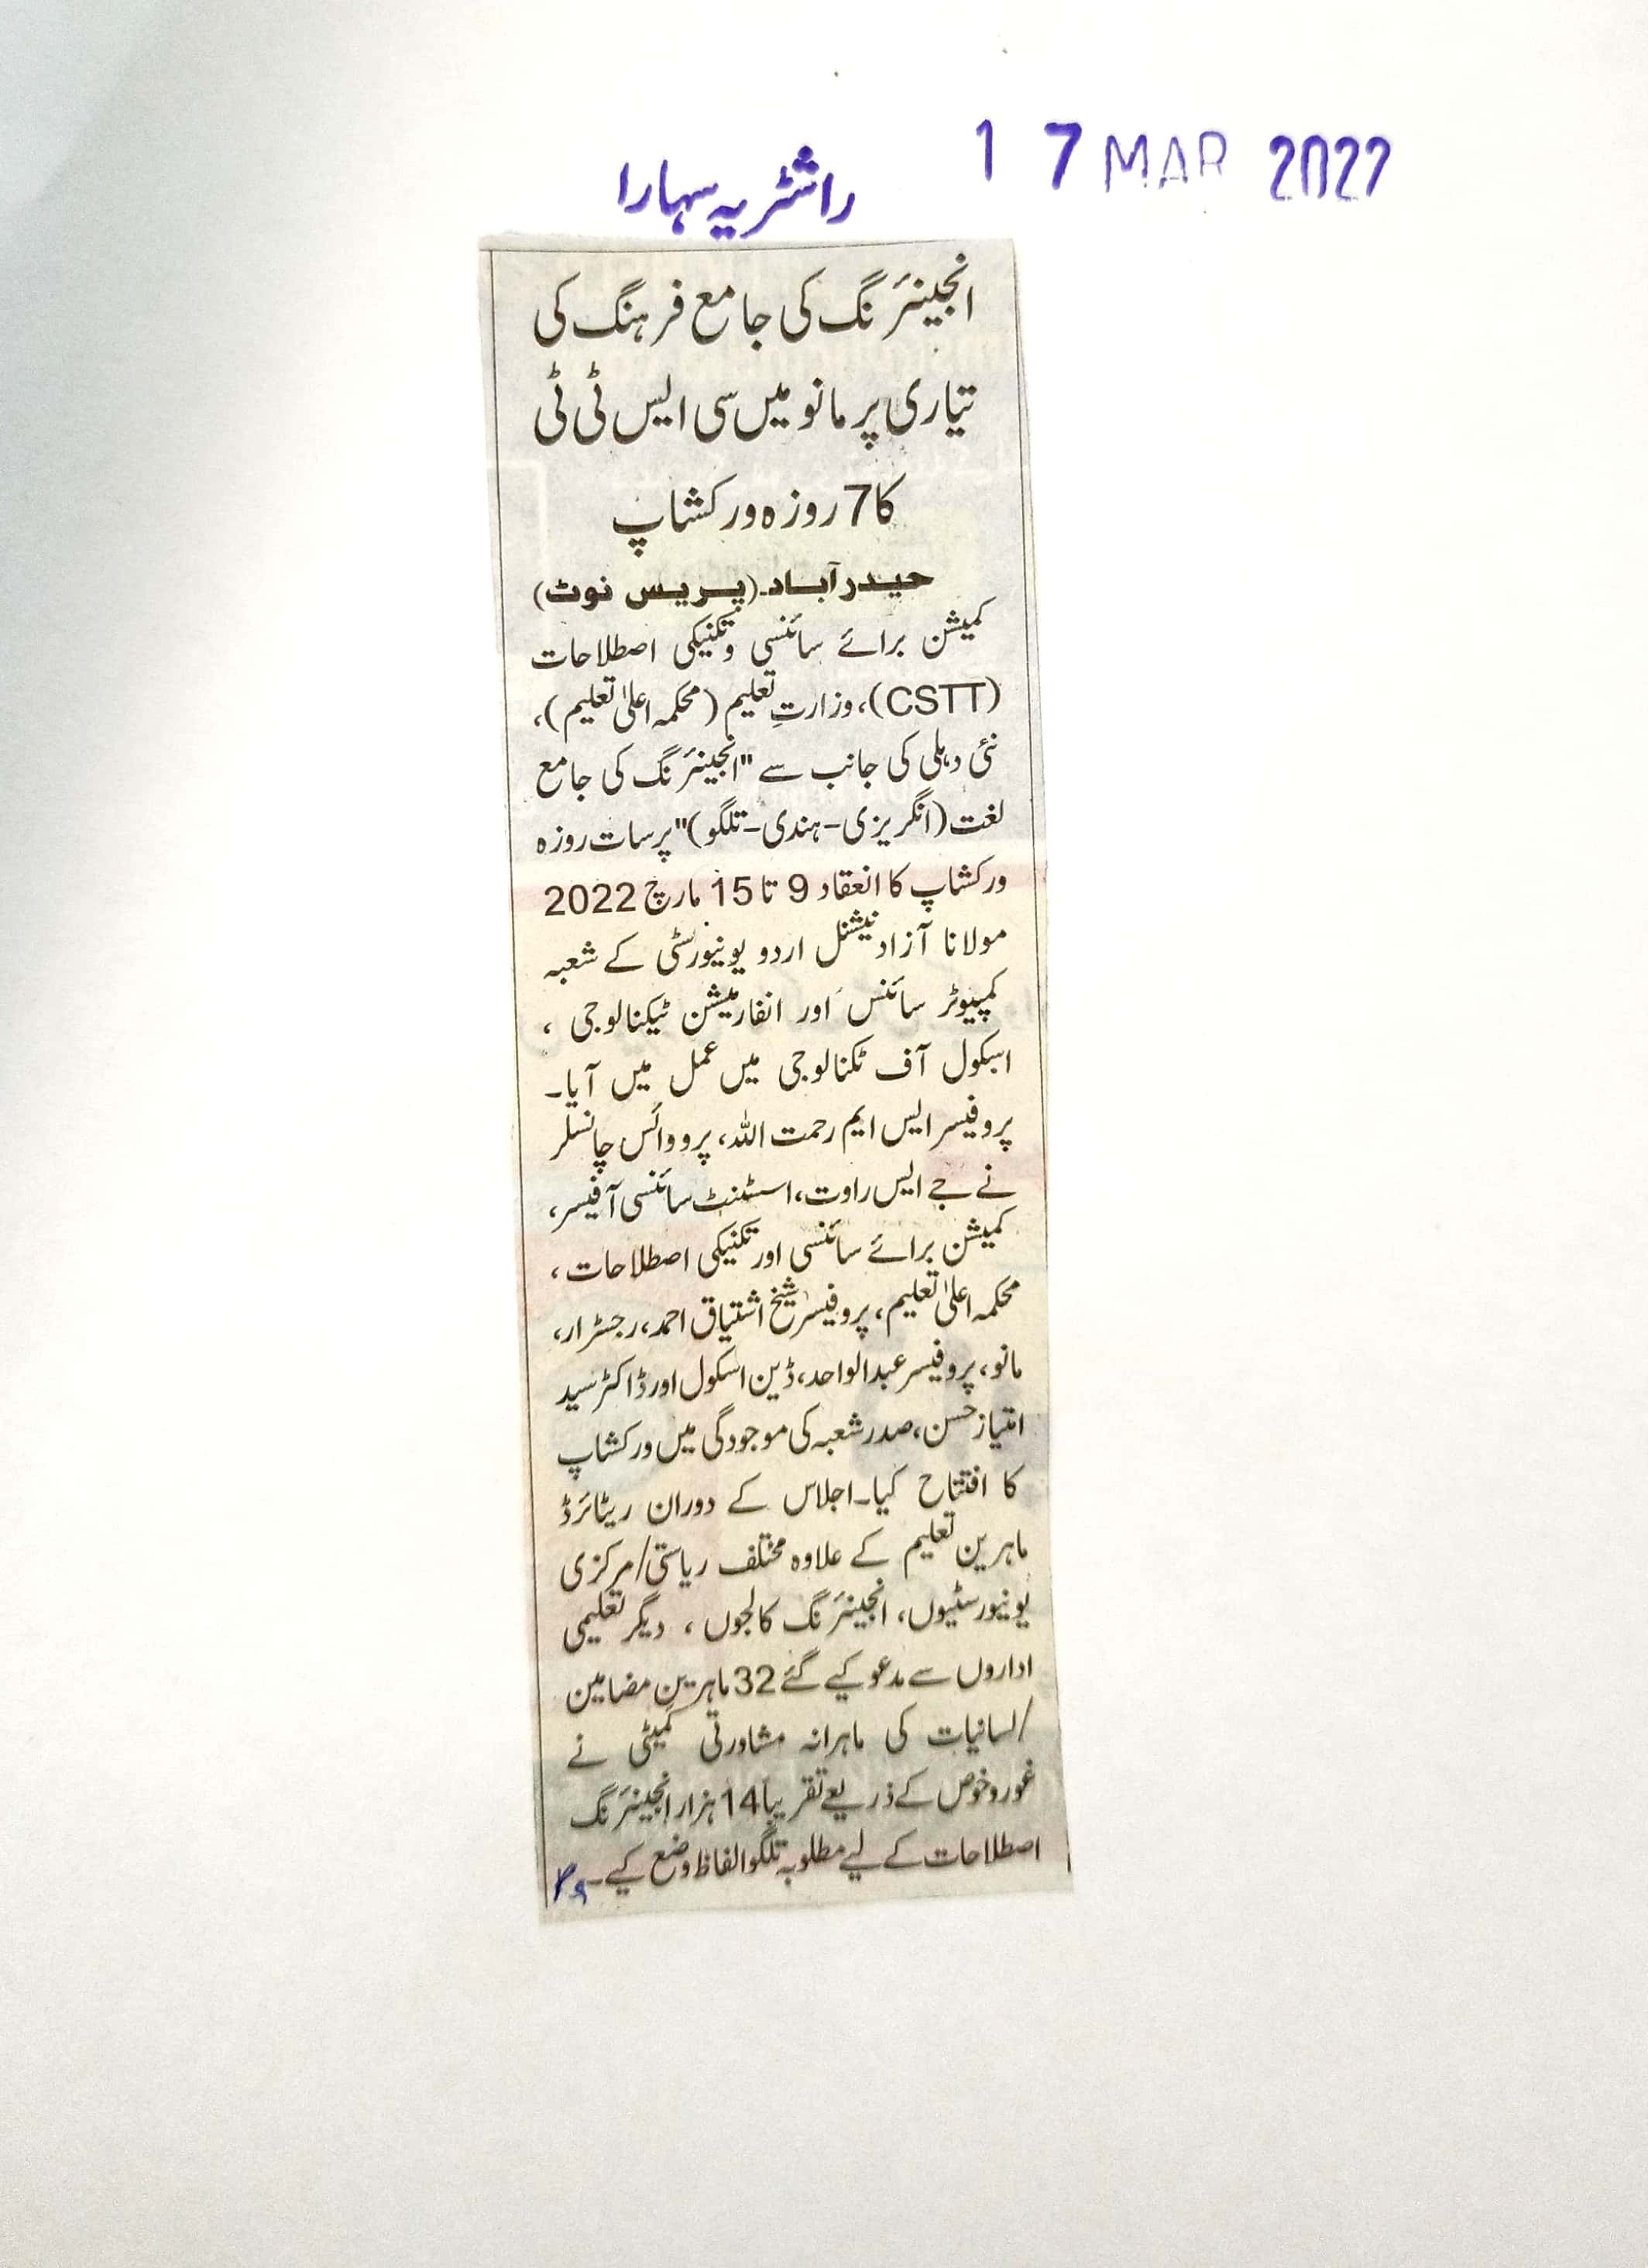 راشٹریہ سہارا
17 MAR 2022
انجینئرنگ کی جامع فرہنگ کی
تیاری پر مانو میں سی ایس ٹی ٹی
کا 7 روزہ ورکشاپ
حیدرآباد۔(پریس نوٹ)
کمیشن برائے سائنسی و تکنیکی اصطلاحات
(CSTT)، وزارتِ تعلیم (محکمہ اعلیٰ تعلیم)،
نئی دہلی کی جانب سے "انجینئرنگ کی جامع
لغت (انگریزی-ہندی-تلگو)" پر سات روزہ
ورکشاپ کا انعقاد 9 تا 15 مارچ 2022
مولانا آزاد نیشنل اردو یونیورسٹی کے شعبہ
کمپیوٹر سائنس اور انفارمیشن ٹیکنالوجی ،
اسکول آف ٹکنالوجی میں عمل میں آیا۔
پروفیسر ایس ایم رحمت اللہ، پرو وائس چانسلر
نے جے ایس راوت، اسسٹنٹ سائنسی آفیسر،
کمیشن برائے سائنسی اور تکنیکی اصطلاحات،
محکمہ اعلیٰ تعلیم، پروفیسر شیخ اشتیاق احمد، رجسٹرار،
مانو، پروفیسر عبدالواحد، ڈین اسکول اور ڈاکٹر سید
امتیاز حسن، صدر شعبہ کی موجودگی میں ورکشاپ
کا افتتاح کیا۔ اجلاس کے دوران ریٹائرڈ
ماہرین تعلیم کے علاوہ مختلف ریاستی/مرکزی
یونیورسٹیوں، انجینئرنگ کالجوں ، دیگر تعلیمی
اداروں سے مدعو کیے گئے 32 ماہرینِ مضامین
/لسانیات کی ماہرانہ مشاورتی کمیٹی نے
غور و خوض کے ذریعے تقریباً 14 ہزار انجینئرنگ
اصطلاحات کے لیے مطلوبہ تلگو الفاظ وضع کیے۔